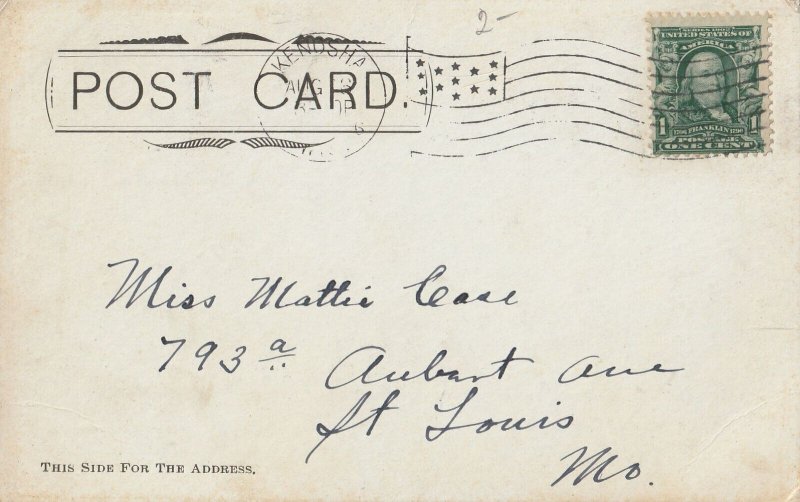 2-
POST CARD.
KENOSHA
AUG
6
SERIES 1902
UNITED STATES OF
AMERICA
1706 FRANKLIN 1790
1 POSTAGE 1
ONE CENT
Miss Mattie Case
793 a
Aubert Ave
St Louis
Mo.
THIS SIDE FOR THE ADDRESS.